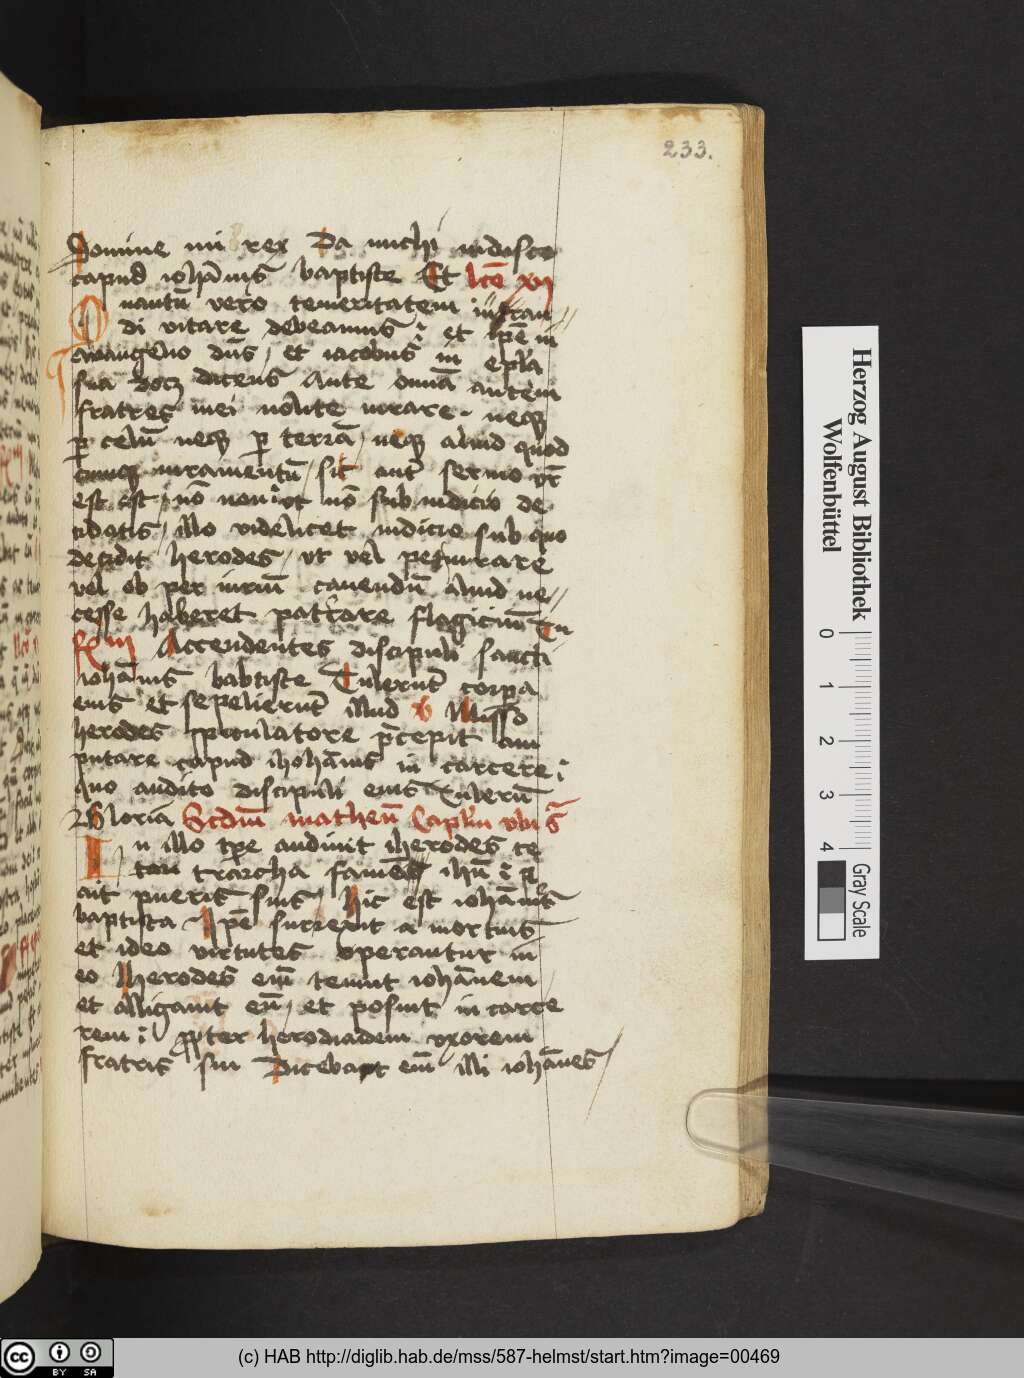 233.
Domine mi rex Da michi indisco
capud ioha̅nis baptiste Et lc̅e xij
Q nantu̅ vero temeritatem iuran
di vitare debeamus et ip̅e in
ewangelio dn̅s et iacobus in epl̅a
sua docz dicens Ante omia̅ autem
fratres mei nolite iurare neqꝫ
ꝑ celu̅ neqꝫ ꝑ terra̅ neqꝫ aliud quod
cumqꝫ iuramentu̅ sit aut̅ sermo vr̅
est est no̅ non ut no̅ sub iudicio de
cidatis illo videlicet iudicio sub quo
decidit herodes vt vel peiurare
vel ob periuriu̅ cauendu̅ aliud ne
cesse haberet patrare flagicium Tu
Accendentes discipuli sancti
ioha̅nis babtiste Tulerut̅ corpᵃ
eius et sepelierut̅ illud v Misso
herodes spiculatore p̅cepit am
putare capud ihoha̅nis in carcere
quo audito discipuli eius Tuleru̅
Gloria Scdm̅ matheu̅ Capl̅m
I n illo tp̅e audiuit iherodes te
trarcha fama̅ ihu̅
ait pueris suis hic est ioha̅nes
baptista Ip̅e surrexit a mortuis
et ideo virtutes operantur in
eo Iherodes em̅ tenuit ioha̅nem
et alligauit eu̅ et posuit in carce
rem ꝓpter herodiadem vxorem
fratris sui Dicebat em̅ illi ioha̅nes
Herzog August Bibliothek
Wolfenbüttel
0 1 2 3 4
Gray Scale
(c) HAB http://diglib.hab.de/mss/587-helmst/start.htm?image=00469
cc BY SA